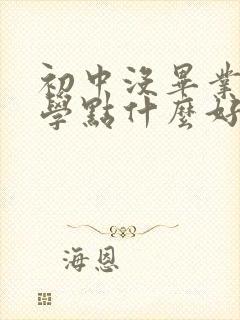 初中沒畢業
學點什麼好
海恩